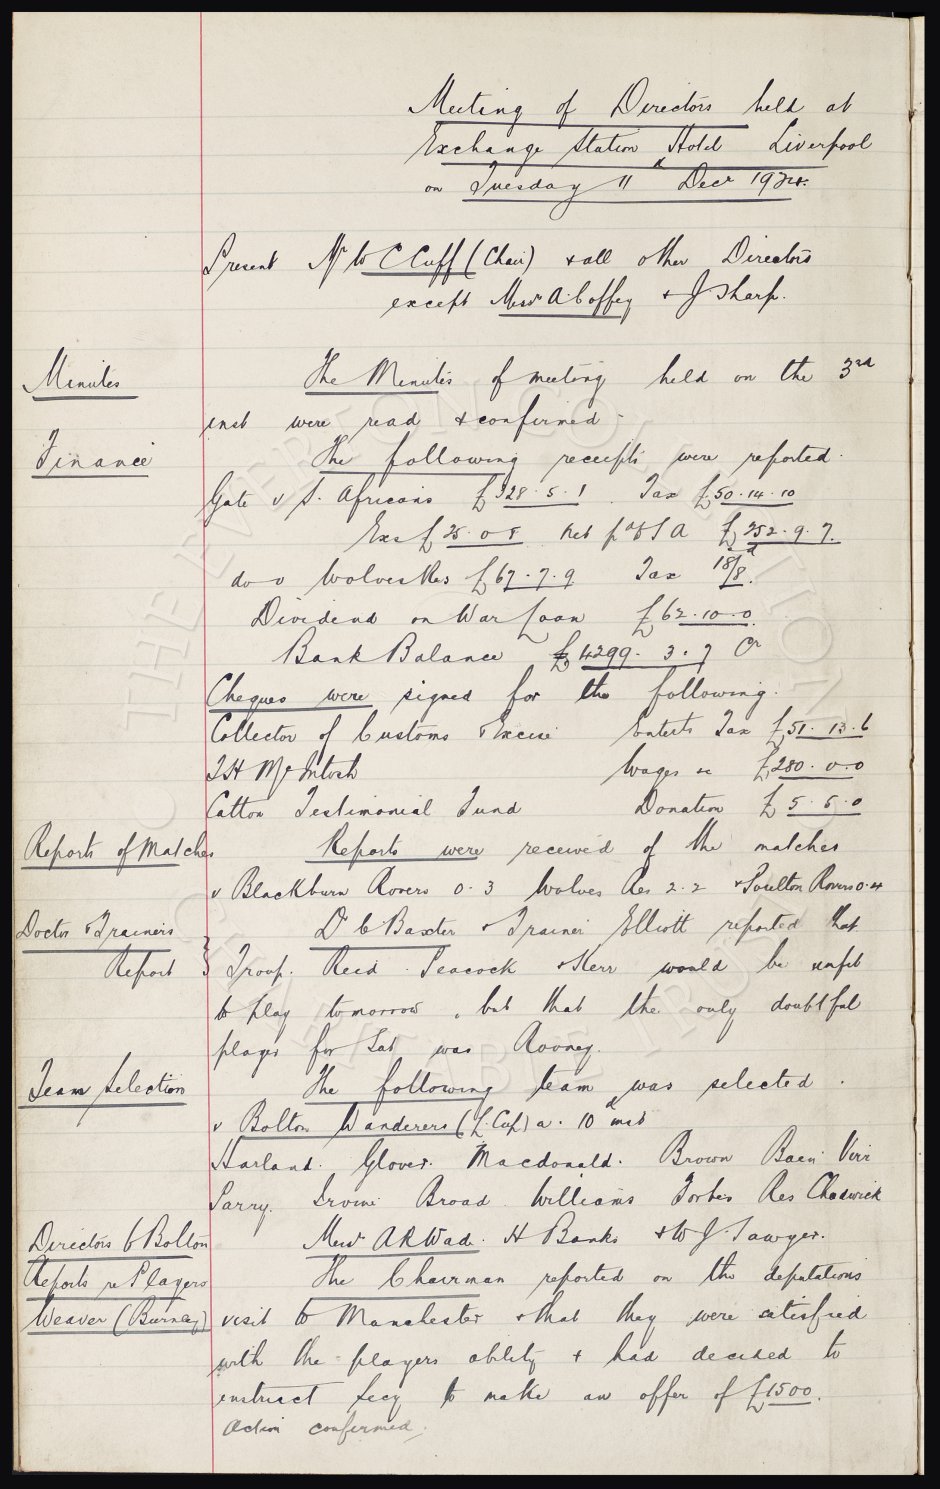 Meeting of Directors held at
Exchange Station Hotel Liverpool
on Tuesday 11th Decr 1924.
Present Mr W C Cuff (Chair) & all other Directors
except Messrs A. Coffey & J Sharp.
Minutes
The Minutes of meeting held on the 3rd
inst were read & confirmed
Finance
The following receipts were reported.
Gate v S. Africans £328.5.1 Tax £50.14.10
Exs £25.0.8 net pd to S A £252.9.7.
do v Wolves Res £67.7.9 Tax 18/8d.
Dividend on War Loan £62.10.0.
Bank Balance £4299.3.7 Cr
Cheques were signed for the following.
Collector of Customs & Excise Enterts Tax £51.13.6
T H McIntosh Wages &c £280.0.0
Catton Testimonial Fund Donation £5.5.0
Reports of Matches
Reports were received of the matches
v Blackburn Rovers 0.3 Wolves Res 2.2 & Poulton Rovers 0.4
Doctor & Trainers
Report
Dr C Baxter & Trainer Elliott reported that
Troup. Reid. Peacock & Kerr would be unfit
to play tomorrow, but that the only doubtful
player for Sat was Rooney.
Team Selection
The following team was selected.
v Bolton Wanderers (L. Cup) a. 10th inst
Harland. Glover. Macdonald. Brown Bain Virr
Parry. Irvine Broad Williams Forbes Res Chadwick
Directors to Bolton
Messrs A R Wade. H Banks & W J. Sawyer.
Reports re Players
Weaver (Burnley)
The Chairman reported on the deputations
visit to Manchester & that they were satisfied
with the players ability & had decided to
instruct Secy to make an offer of £1500.
Action confirmed.